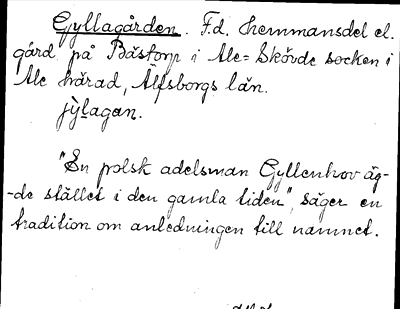 Gyllagården. F.d. hemmansdel el.
gård på Båstorp i Ale-Skövde socken i
Ale härad, Älfsborgs län.
jỳlagan.
"En polsk adelsman Gyllenhov äg-
-de stället i den gamla tiden", säger en
tradition om anledningen till namnet.